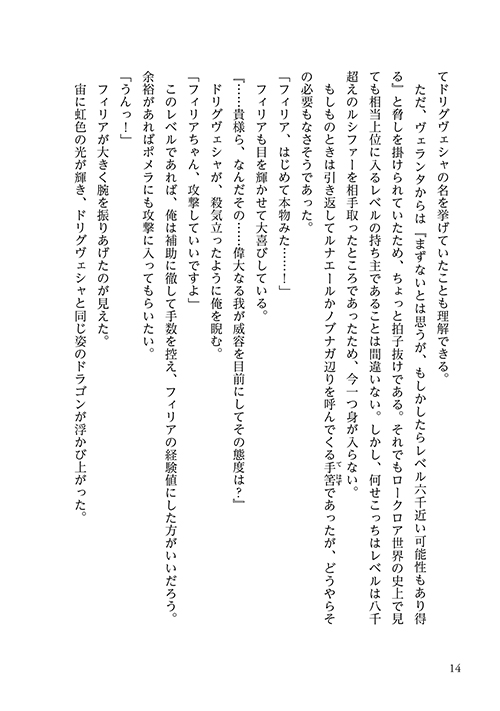 てドリグヴェシャの名を挙げていたことも理解できる。
ただ、ヴェランタからは『まずないとは思うが、もしかしたらレベル六千近い可能性もあり得
る』と脅しを掛けられていたため、ちょっと拍子抜けである。それでもロークロア世界の史上で見
ても相当上位に入るレベルの持ち主であることは間違いない。しかし、何せこっちはレベルは八千
超えのルシファーを相手取ったところであったため、今一つ身が入らない。
もしものときは引き返してルナエールかノブナガ辺りを呼んでくる手筈であったが、どうやらそ
てはず
の必要もなさそうであった。
「フィリア、はじめて本物みた……！」
フィリアも目を輝かせて大喜びしている。
『……貴様ら、なんだその……偉大なる我が威容を目前にしてその態度は？』
ドリグヴェシャが、殺気立ったように俺を睨む。
「フィリアちゃん、攻撃していいですよ」
このレベルであれば、俺は補助に徹して手数を控え、フィリアの経験値にした方がいいだろう。
余裕があればポメラにも攻撃に入ってもらいたい。
「うんっ！」
フィリアが大きく腕を振りあげたのが見えた。
宙に虹色の光が輝き、ドリグヴェシャと同じ姿のドラゴンが浮かび上がった。
14